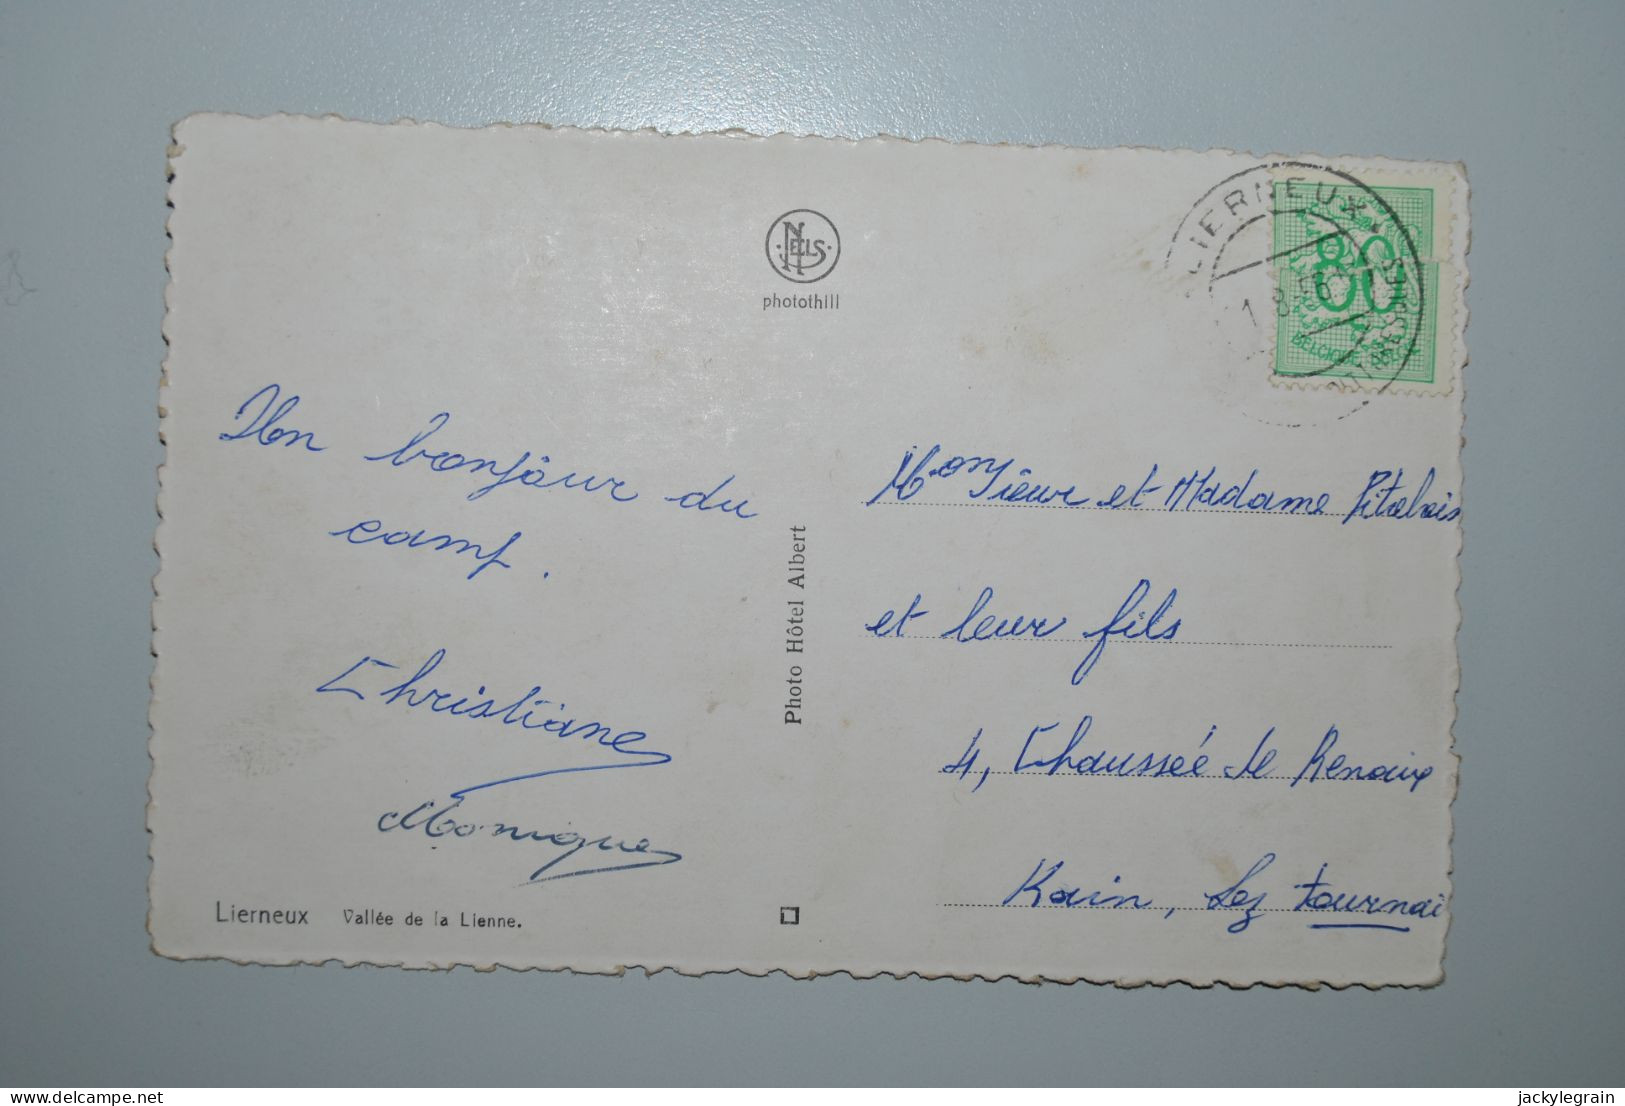 NELS
photothill
LIERNEUX
1.8.56
80
BELGIQUE
Un bonjour du
camp.
Christiane
Monique
Photo Hôtel Albert
Monsieur et Madame Pitalois
et leur fils
4, Chaussée de Renaix
Kain, Lez Tournai
Lierneux Vallée de la Lienne.
delcampe.net
jackylegrain